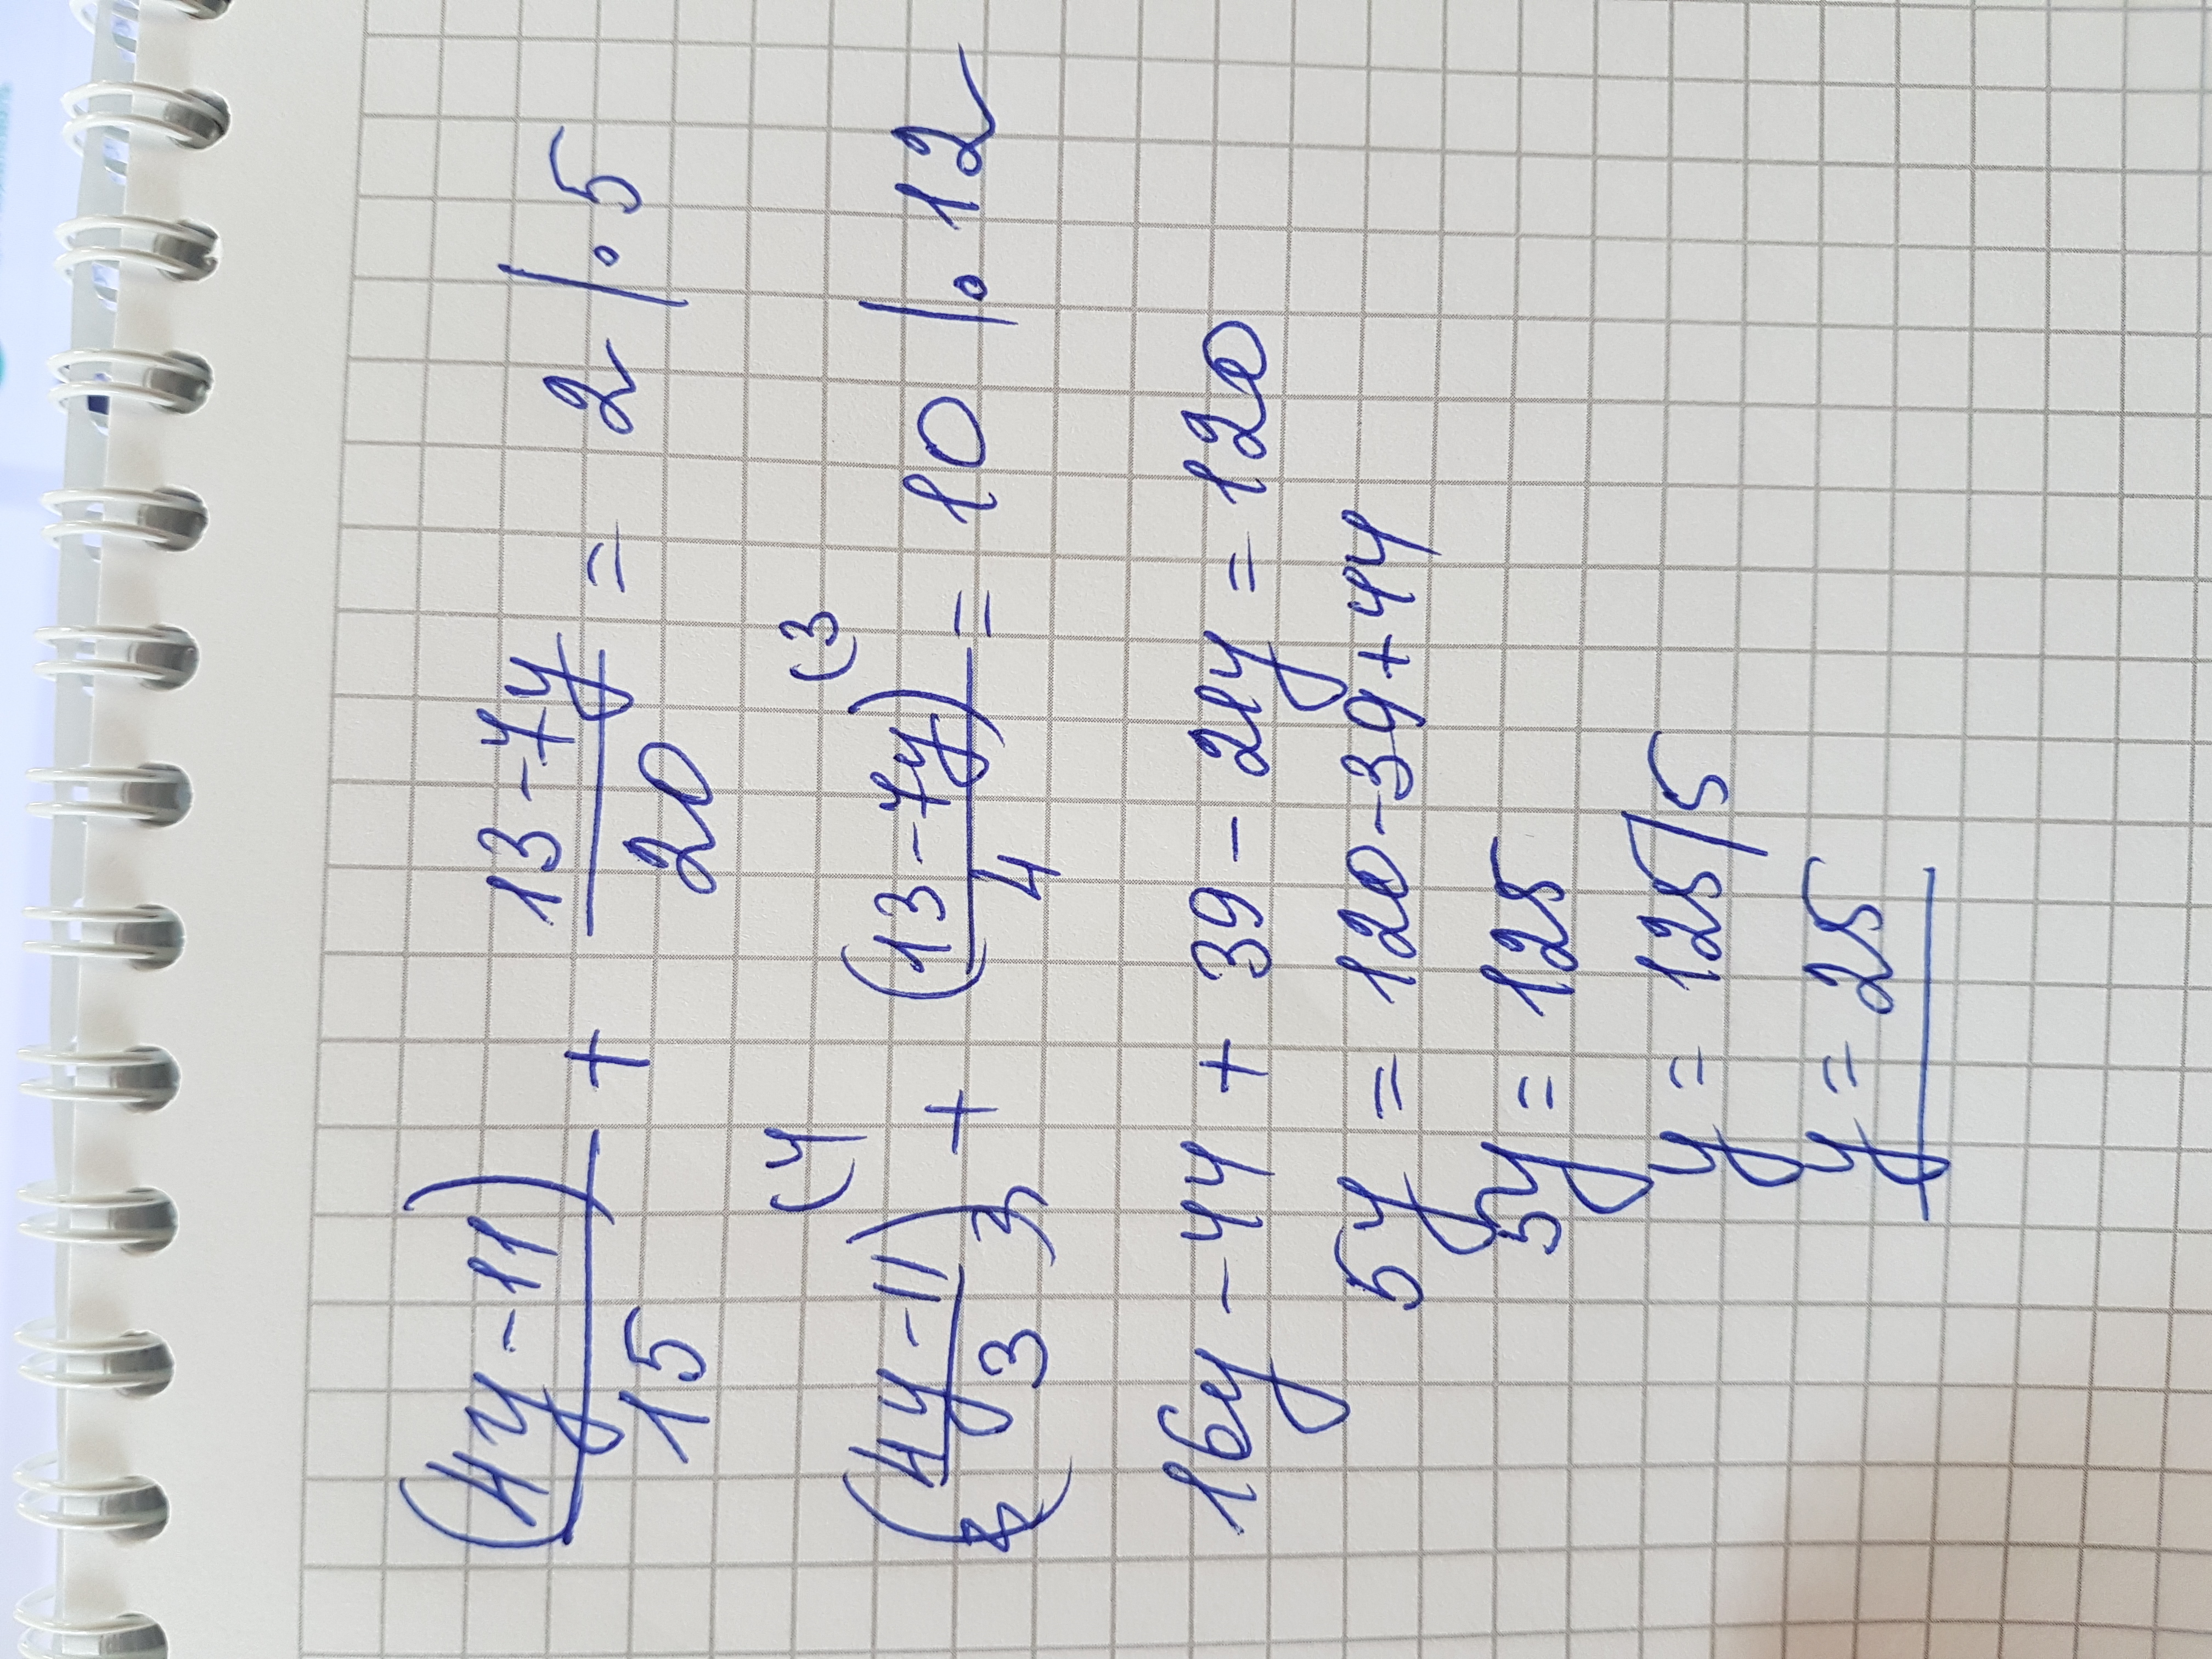 (4y-11)/15 + 13-7y/20 = 2 |·5
(4 (3
(4y-11)/3 + (13-7y)/4 = 10 |·12
16y - 44 + 39 - 21y = 120
5y = 120-39+44
5y = 125
y = 125/5
y = 25